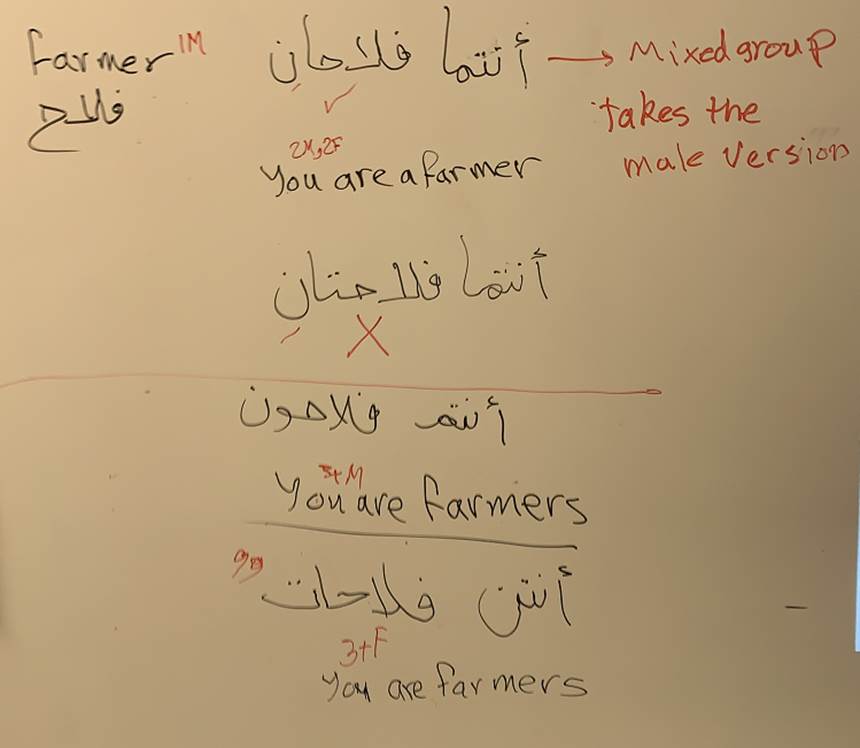 farmer 1M
فلاح
أنتما فلاحانِ → Mixed group
takes the
male version
✓
2M,2F
You are a farmer
أنتما فلاحتانِ
X
أنتم فلاحون
3+M
You are farmers
أنتن فلاحات
3+F
You are farmers